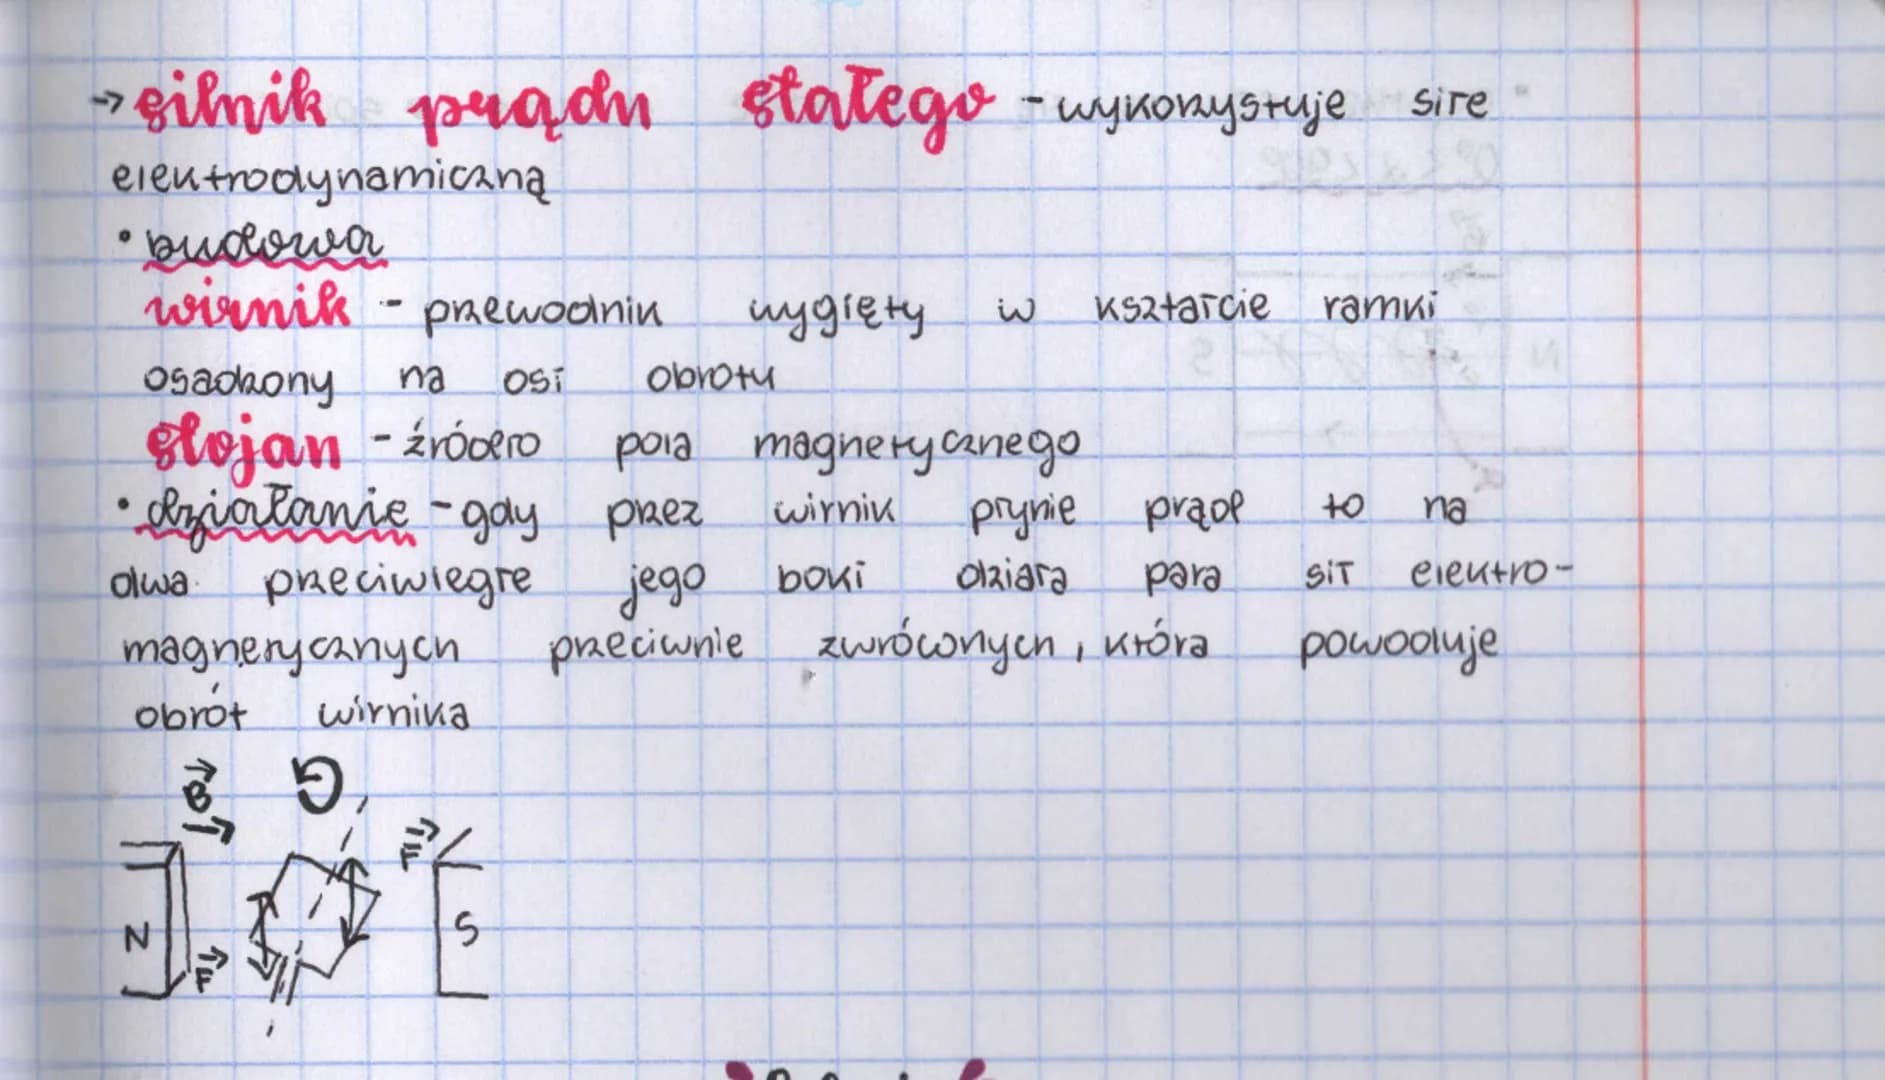 → silnik prądu stałego - wykorzystuje siłę
elektrodynamiczną
• budowa
wirnik - przewodnik wygięty w kształcie ramki
osadzony na osi obrotu
stojan - źródło pola magnetycznego
• działanie - gdy przez wirnik płynie prąd to na
dwa przeciwległe jego boki działa para sił elektro-
magnetycznych przeciwnie zwróconych, która powoduje
obrót wirnika
B
F
N
F
S